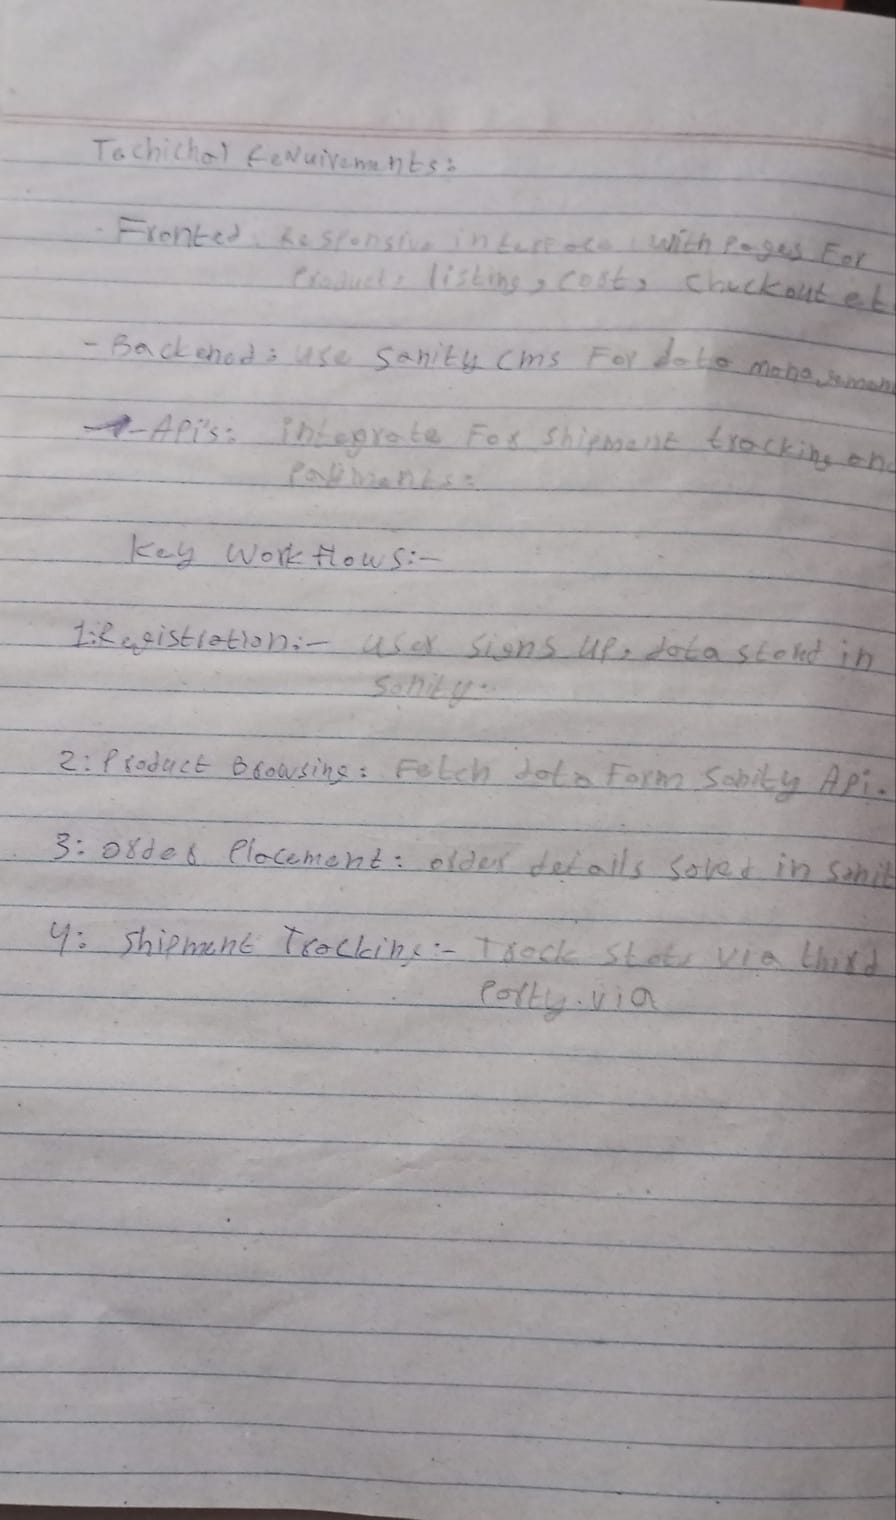 Tachichal Requirements:
- Fronted. Responsive interface with Pages For
Product, listing, cost, checkout et
- Backened: use Sanity cms For data managemen
- API's: integrate For shipment tracking and
Payments:
Key Workflows:-
1: Registration:- user signs up, data stored in
sanity.
2: Product Browsing: Fetch data Form Sanity Api.
3: Order Placement: order details saved in sanit
4: Shipment Tracking:- Track stats via third
Party. via